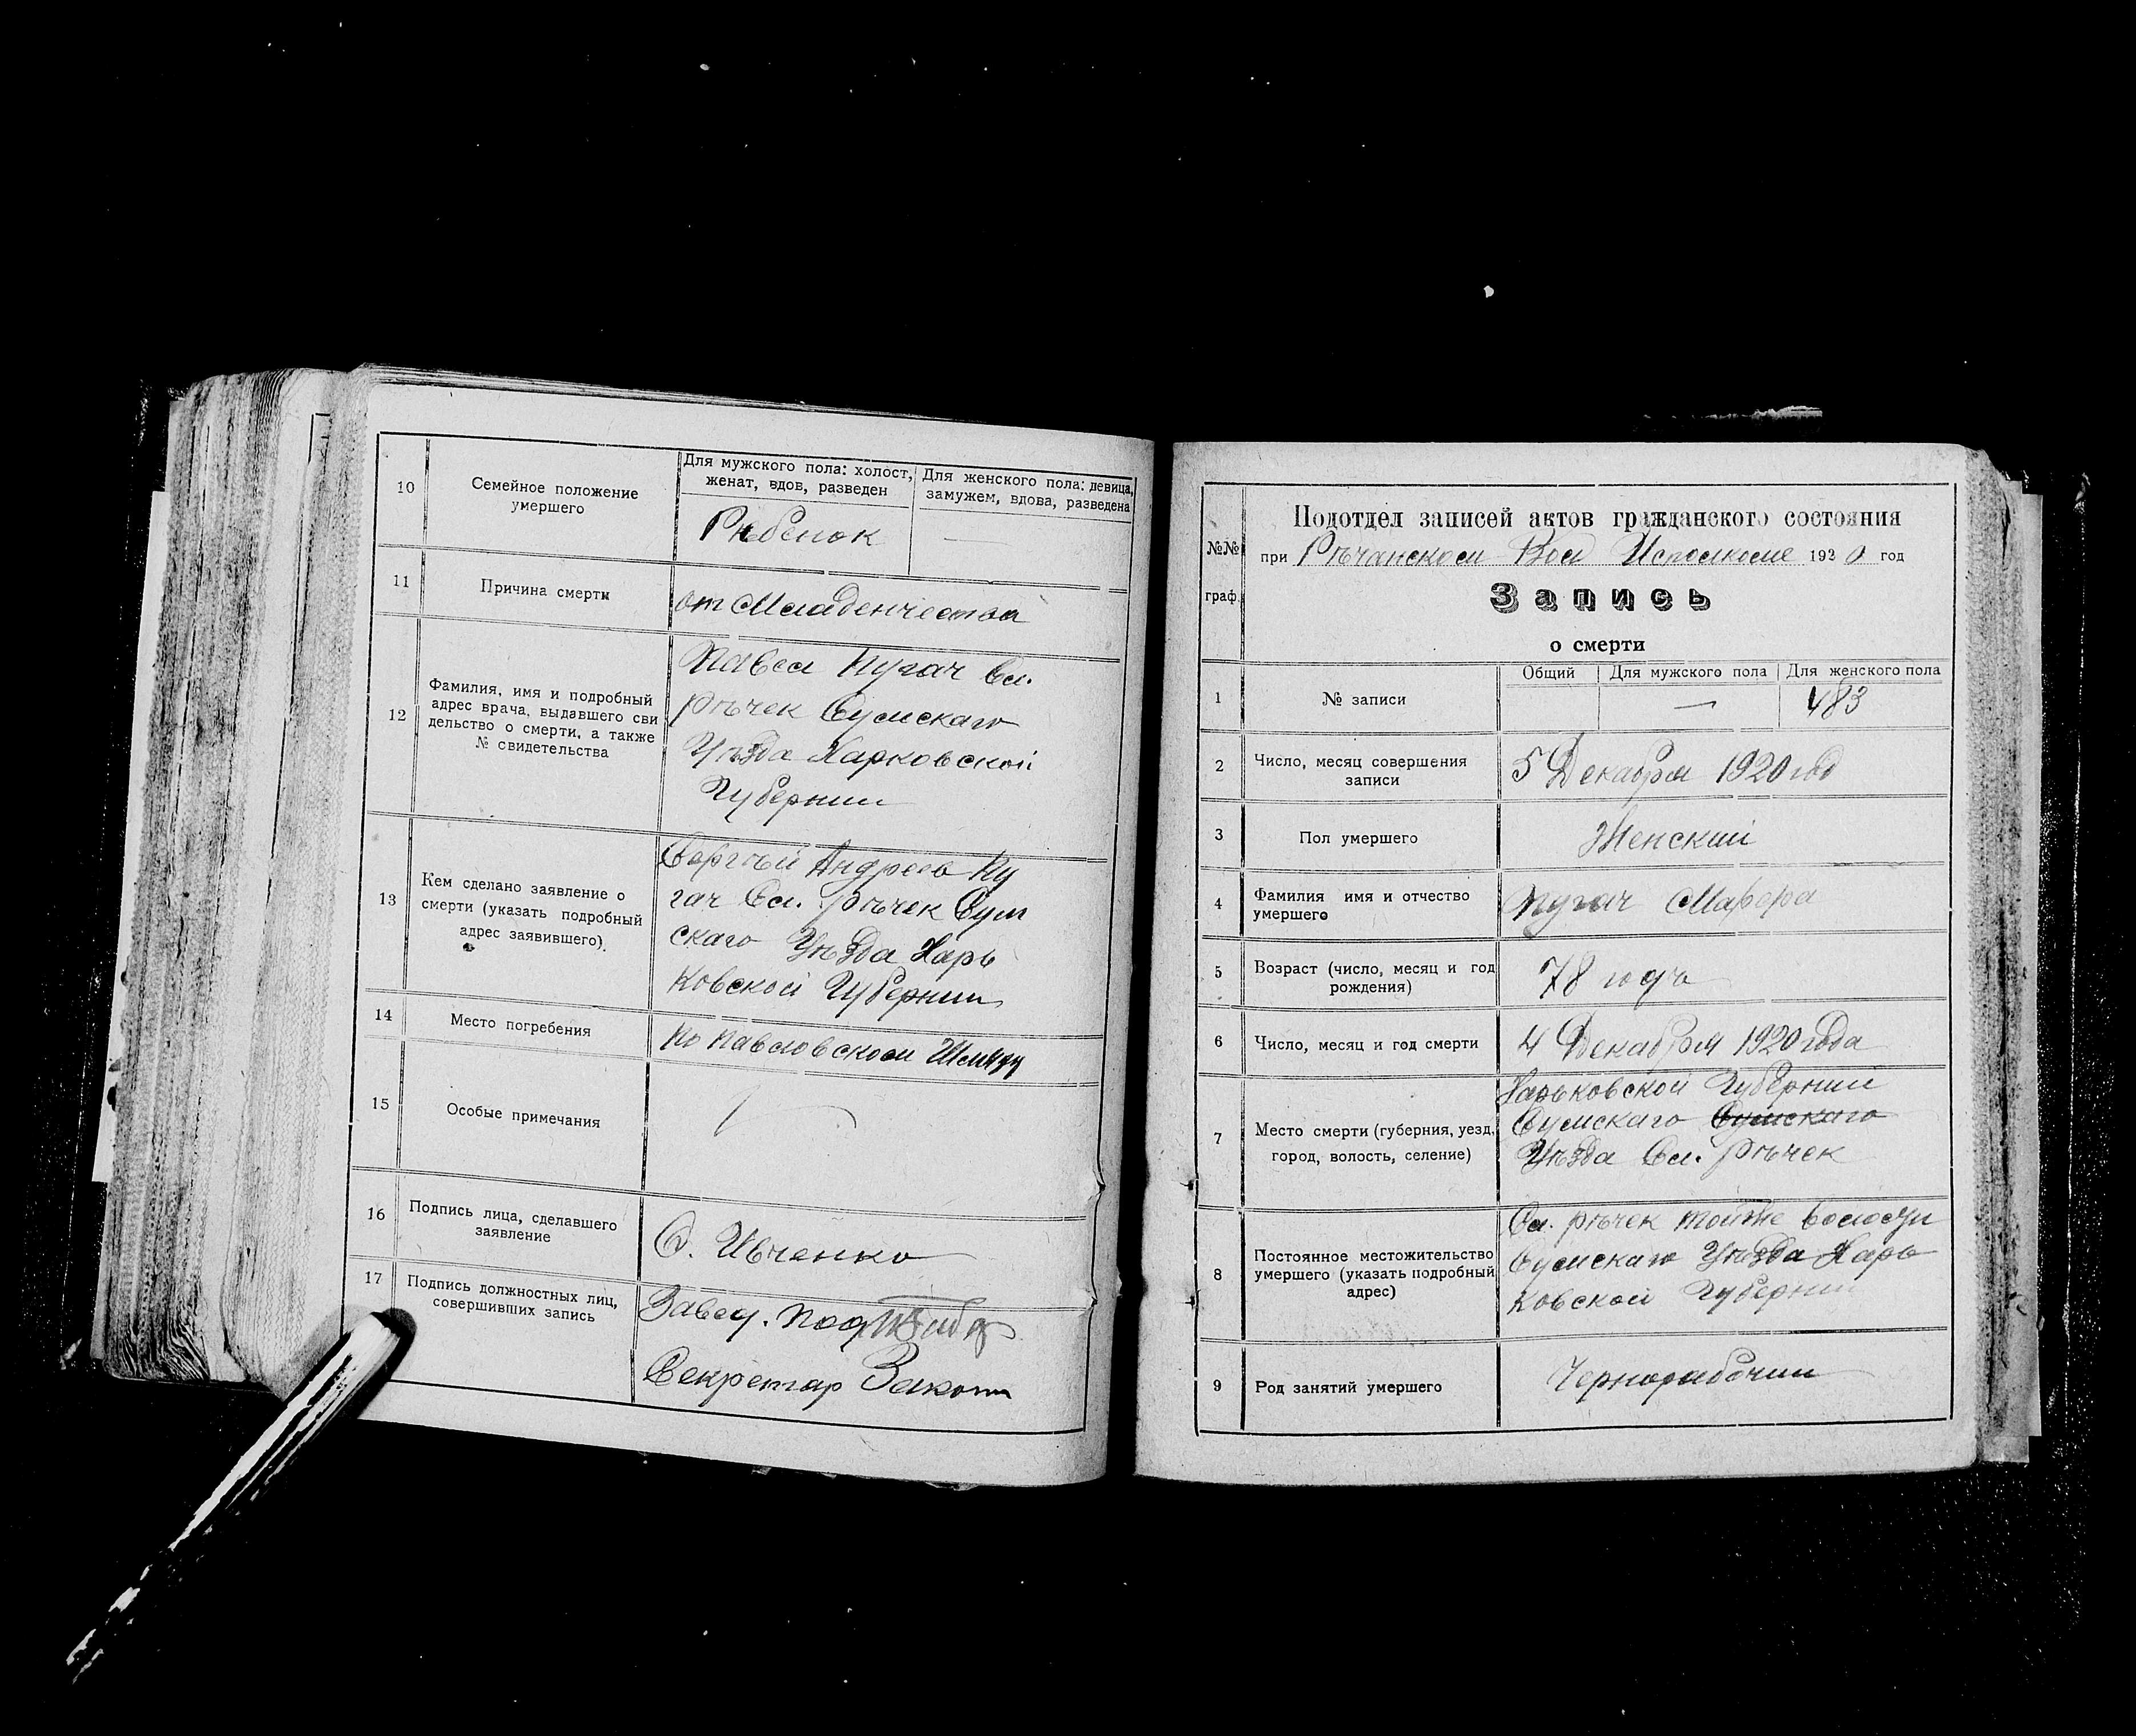 10
Семейное положение
умершего
Для мужского пола: холост,
женат, вдов, разведен
Для женского пола: девица,
замужем, вдова, разведена
Рѣбенок
11
Причина смерти
от Младенчества
12
Фамилия, имя и подробный
адрес врача, выдавшего сви
дельство о смерти, а также
№ свидетельства
Павел Пугач Сл.
Рѣчек Сумскаго
Уѣзда Харковской
Губернии
13
Кем сделано заявление о
смерти (указать подробный
адрес заявившего).
Сергѣй Андреев Пу
гач Сл. Рѣчек Сум
скаго Уѣзда Харь
ковской Губернии
14
Место погребения
По Павловском Шляху
15
Особые примечания
16
Подпись лица, сделавшего
заявление
С. Ивченко
17
Подпись должностных лиц,
совершивших запись
Завед. Под
Секретар
№№
граф.
Подотдел записей актов гражданского состояния
при Рѣчанском Вол Исполкоме 1920 год
Запись
о смерти
1
№ записи
Общий
Для мужского пола
Для женского пола
—
483
2
Число, месяц совершения
записи
5 Декабря 1920 год
3
Пол умершего
Женский
4
Фамилия имя и отчество
умершего
Пугач
5
Возраст (число, месяц и год
рождения)
78 годъ
6
Число, месяц и год смерти
4 Декабря 1920 года
7
Место смерти (губерния, уезд,
город, волость, селение)
Харьковской Губернии
Сумскаго Сумскаго
Уѣзда Сл. Рѣчек
8
Постоянное местожительство
умершего (указать подробный
адрес)
Сл. Рѣчек тойже волости
Сумскаго Уѣзда Харь
ковской Губернии
9
Род занятий умершего
Чернорабочии